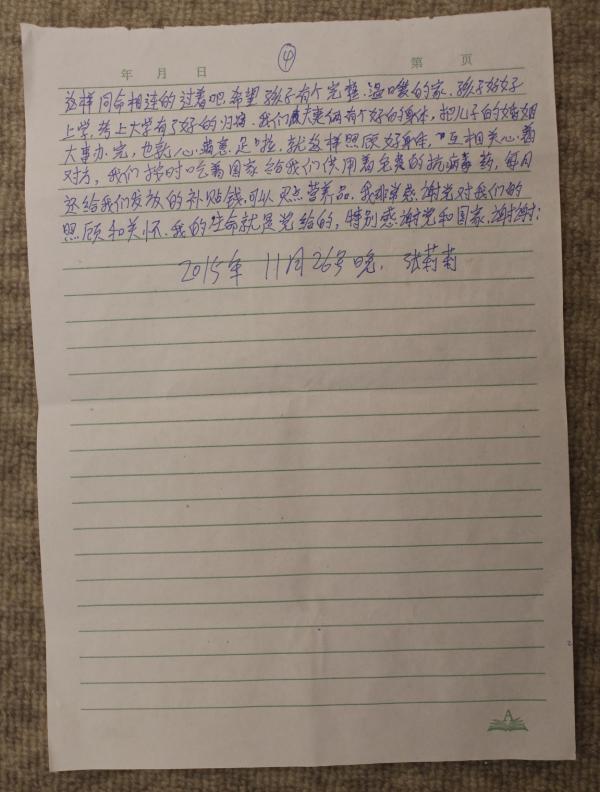 ④
年 月 日 第 页
这样同命相连的过着吧.希望孩子有个完整.温暖的家.孩子好好
上学.考上大学有了好的归宿.我们夫妻俩有个好的身体,把儿子的婚姻
大事办完,也就心满意足啦.就这样照顾好身体,互相关心着
对方,我们按时吃着国家给我们供用着免费的抗病毒药,每月
还给我们发放的补贴钱.可以买点营养品.我非常感谢党对我们的
照顾和关怀.我的生命就是党给的,特别感谢党和国家.谢谢!
2015年 11月26号晚. 张莉莉